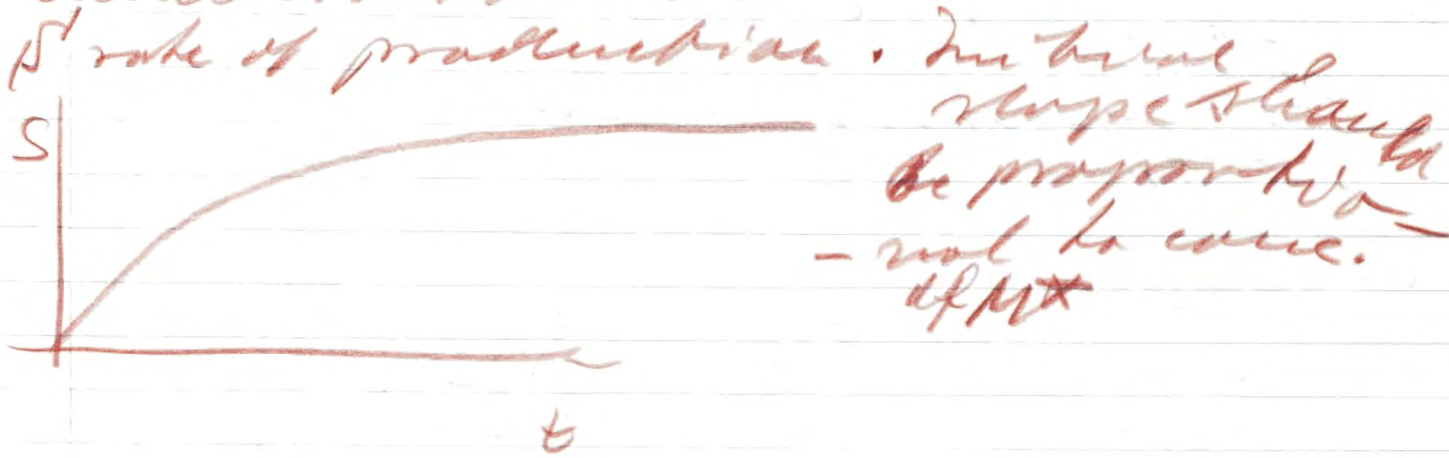 rate of production. Initial
slope should
be proportio-
- nal to conc.
of M*
S
t